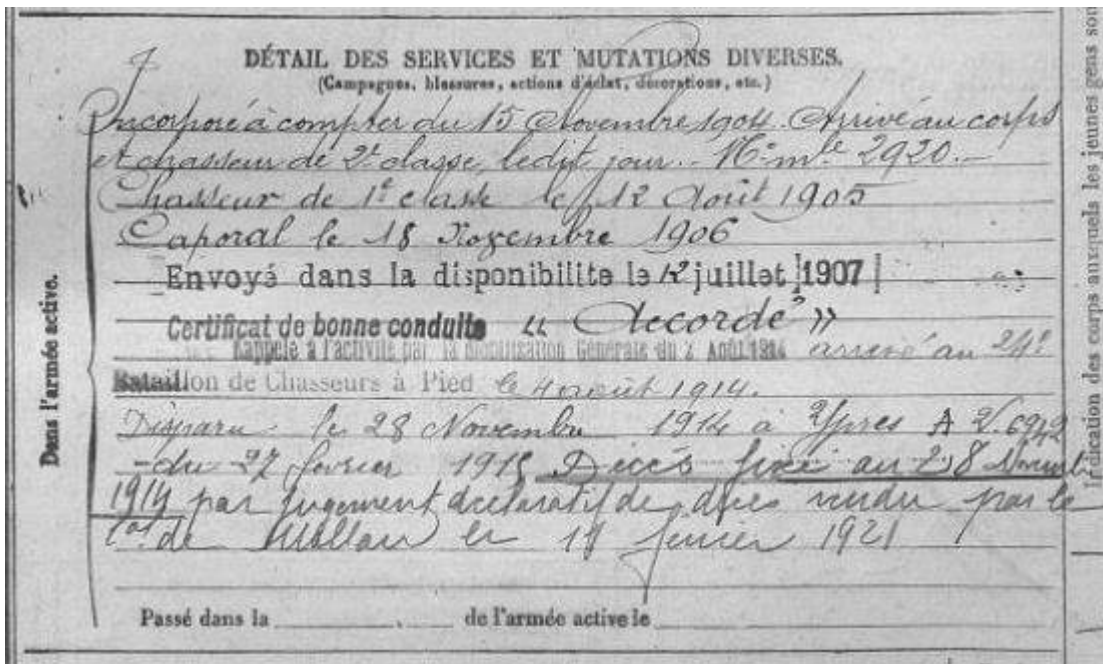 DÉTAIL DES SERVICES ET MUTATIONS DIVERSES.
(Campagnes, blessures, actions d'éclat, décorations, etc.)
Incorporé à compter du 15 Novembre 1904. Arrivé au corps
et chasseur de 2e classe, ledit jour. - No mle 2920. -
Chasseur de 1e classe le 12 Août 1905
Caporal le 18 Novembre 1906
Envoyé dans la disponibilite le 12 juillet 1907
Certificat de bonne conduite « Accordé »
Rappelé à l'activité par la Mobilisation Générale du 2 Août 1914 arrivé au 24e
Bataillon de Chasseurs à Pied le 4 août 1914.
Disparu le 28 Novembre 1914 à Ypres A V. 6942
du 27 février 1915 Décès fixé au 28 Novembre
1914 par jugement déclaratif de décès rendu par le
de le 11 1921
Passé dans la de l'armée active le
Dans l'armée active.
Indication des corps auxquels les jeunes gens son